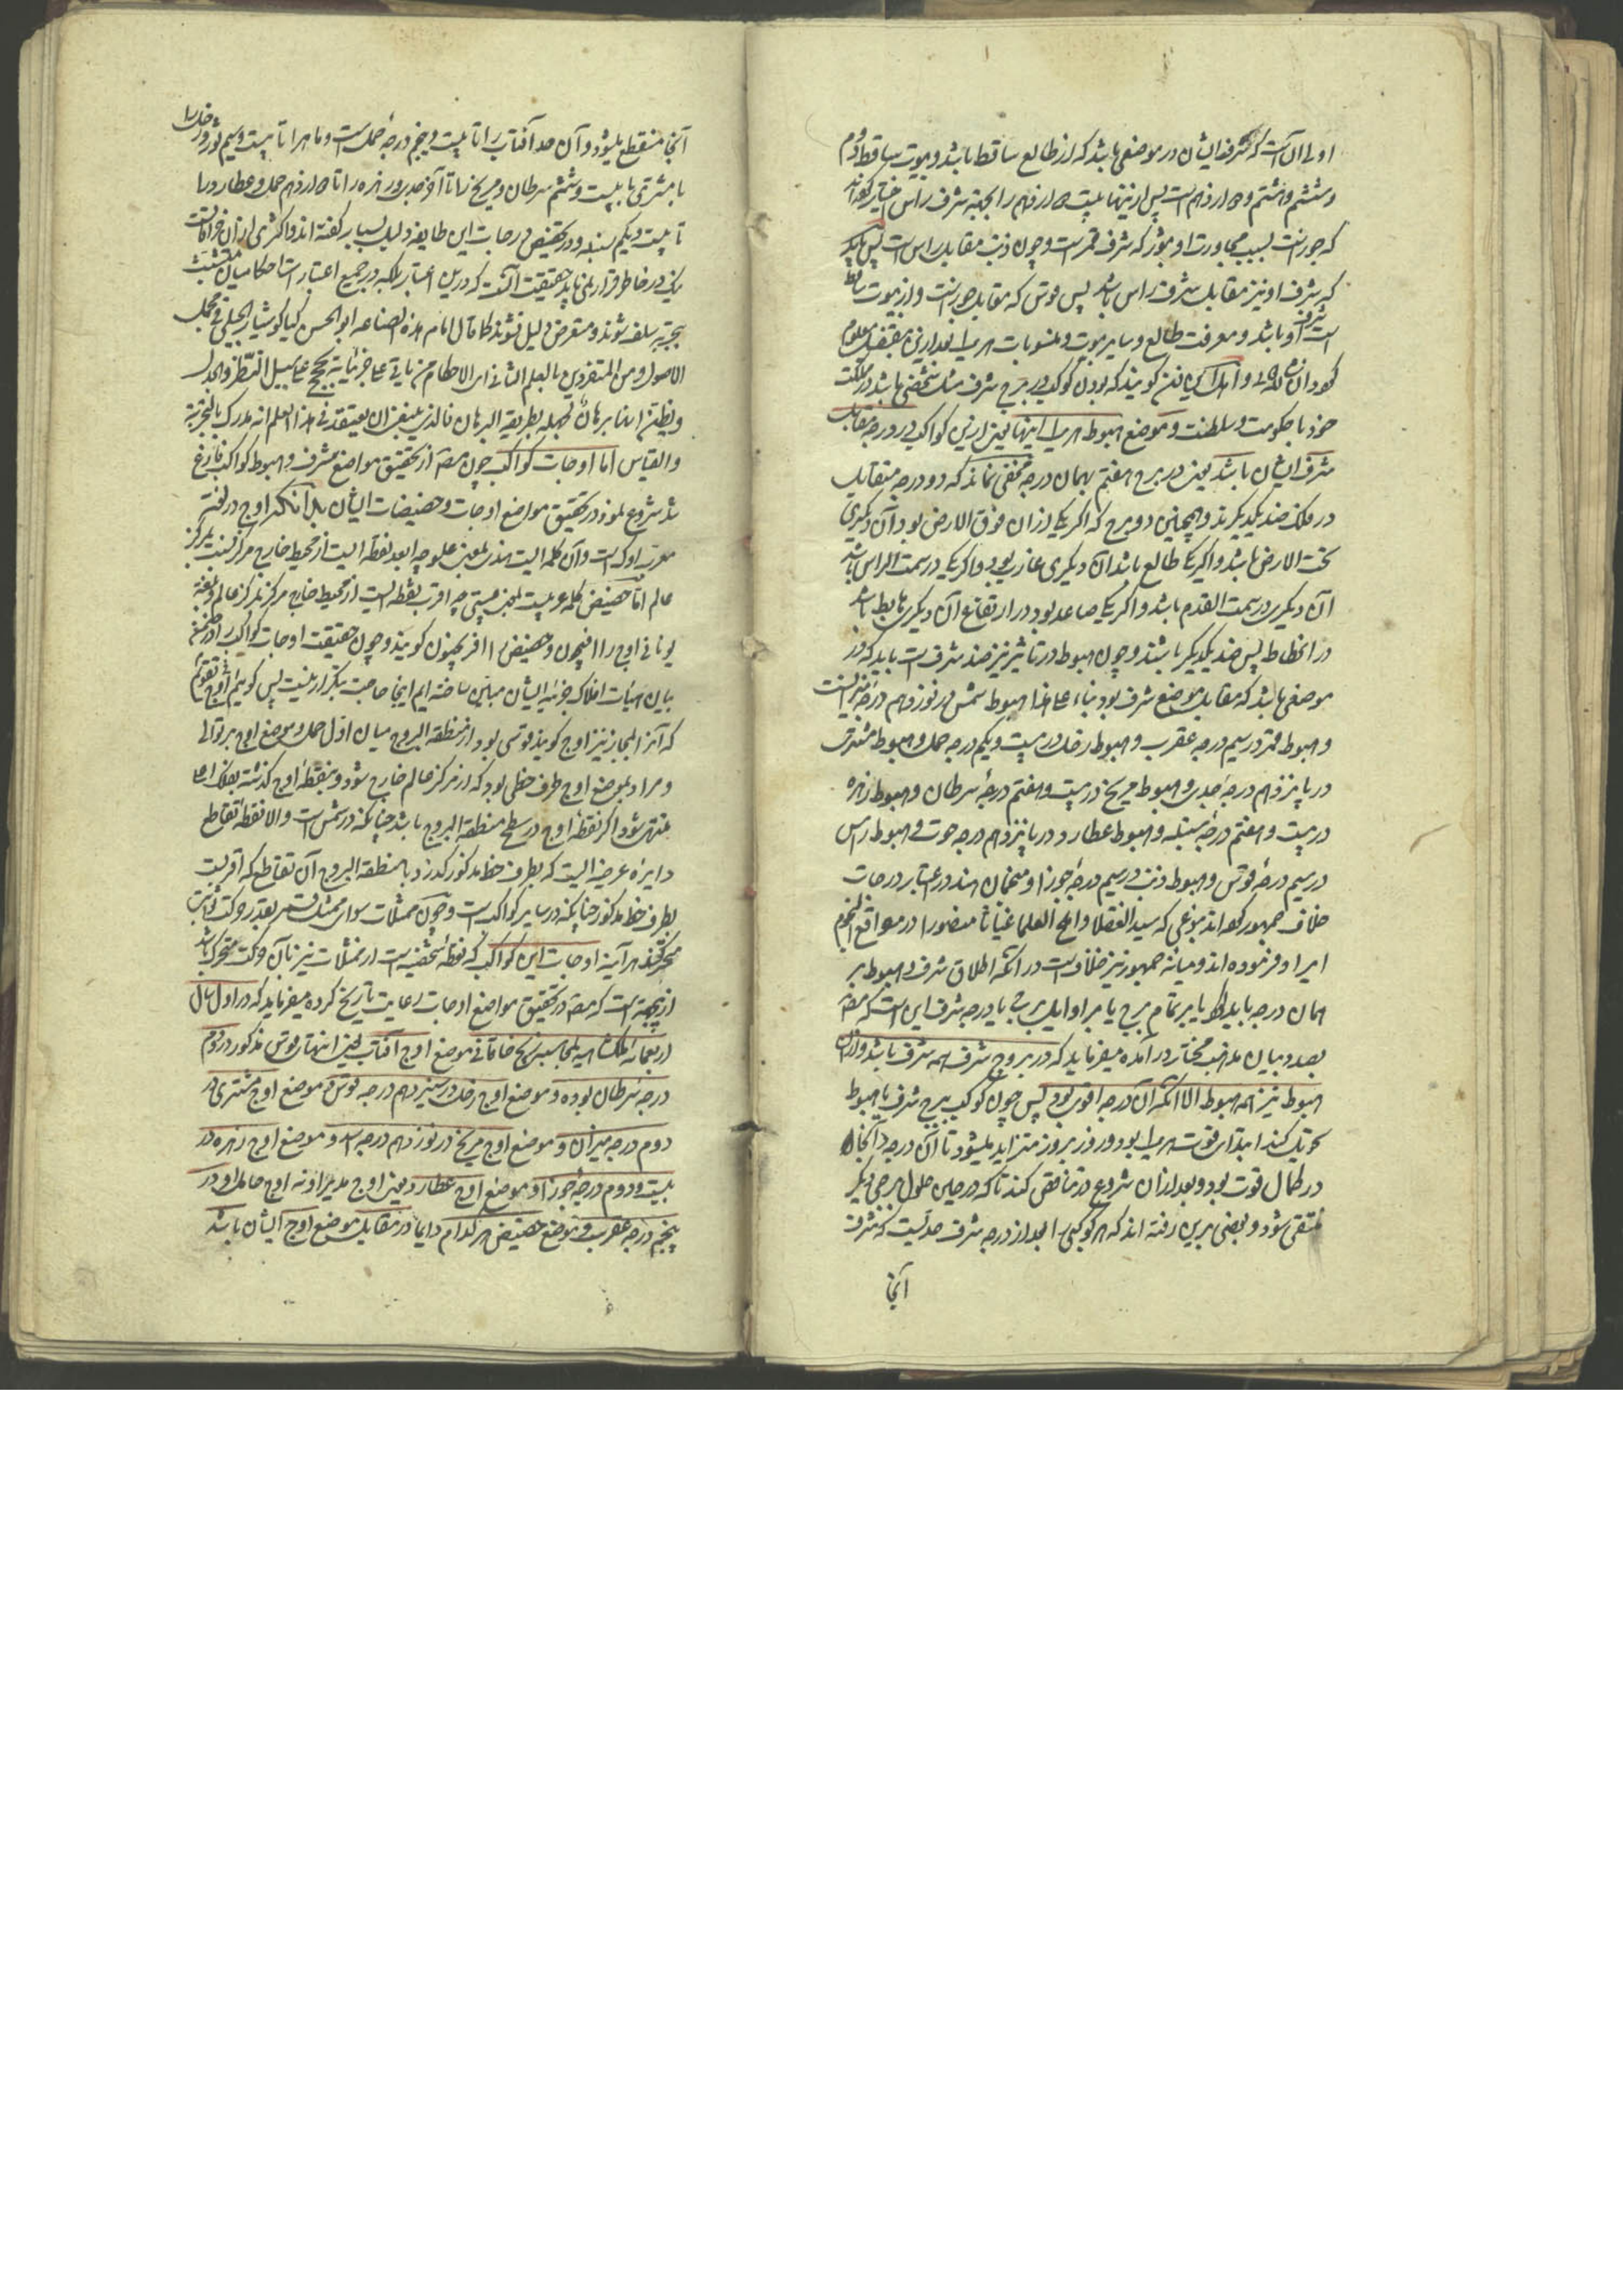 اولی آن است که شرف ایشان در موضعی باشد که از طالع ساقط باشد و بیوت ساقط دوم
و ششم و هشتم و دوازدهم است پس از اینها بیت دوازدهم را بجهة شرف راس اختیار کرده‌اند
که جوز است بسبب مجاورت او بثور که شرف قمر است و چون ذنب مقابل راس است پس باید
که شرف او نیز مقابل شرف راس باشد پس قوس که مقابل جوز است و از بیوت ساقط
است شرف او باشد و معرفت طالع و سایر بیوت و منسوبات هر یک بعد ازین بتفصیل معلوم
گردد ان شاء الله تعالی و اهل این فن گویند که بودن کوکب در برج شرف مثل شخصی باشد در مملکت
خود با حکومت و سلطنت و موضع هبوط هر یک اینها یعنی ازین کواکب در درجه مقابل
شرف ایشان باشد یعنی در برج هفتم بهمان درجه مخفی نماند که دو درجه متقابل
در فلک ضد یکدیگرند و همچنین دو برج که اگر یکی از ان فوق الارض بود آن دیگری
تحت الارض باشد و اگر یکی طالع باشد آن دیگری غارب بود و اگر یکی در سمت الراس باشد
آن دیگر در سمت القدم باشد و اگر یکی صاعد بود در ارتفاع آن دیگر هابط باشد
در انحطاط پس ضد یکدیگر باشند و چون هبوط در تاثیر نیز ضد شرف است باید که در
موضعی باشد که مقابل موضع شرف بود بناء علی هذا هبوط شمس در نوزدهم درجه میزانست
و هبوط قمر در سیم درجه عقرب و هبوط زحل در بیست و یکم درجه حمل و هبوط مشتری
در پانزدهم درجه جدی و هبوط مریخ در بیست و هفتم درجه سرطان و هبوط زهره
در بیست و هفتم درجه سنبله و هبوط عطارد در پانزدهم درجه حوت و هبوط راس
در سیم درجه قوس و هبوط ذنب در سیم درجه جوزا و منجمان هند در اعتبار درجات
خلاف جمهور کرده‌اند بنوعی که سید الفضلا و اعلم العلما غیاثا منصورا در مواقع النجوم
ایراد فرموده‌اند و میانه جمهور نیز خلاف است در آنکه اطلاق شرف و هبوط بر
همان درجه باید کرد یا بر تمام برج یا بر اوایل برج تا درجه شرف این است که مصنف
بصدد بیان مذهب مختار در آمده میفرماید که در بروج شرف همه شرف باشد و در ان
هبوط نیز همه هبوط الا آنکه آن درجه اقوی بود پس چون کوکب ببرج شرف یا هبوط
تحویل کند ابتداء قوت هر یک بود و روز بروز متزاید میشود تا آن درجه و آنجا
در کمال قوت بود و بعد از ان شروع در تناقص کند تا که در حین حلول ببرجی دیگر
منتفی شود و بعضی برین رفته‌اند که هر کوکبی را بعد از درجه شرف حدیست که شرف
آنجا
آنجا منقطع میشود و آن حد آفتاب را تا بیست و پنج درجه حمل است و ماه را تا بیست و سیم ثور و زحل را
با مشتری تا بیست و ششم سرطان و مریخ را تا آخر جدی و زهره را تا دوازدهم حمل و عطارد را
تا بیست و یکم سنبله و در تخصیص درجات این طایفه دلیل بسیار گفته‌اند و اکثری از ان خرافاتست
لیکن در خاطر قرار نمی‌یابد حقیقت آنست که درین اعتبار بلکه در جمیع اعتبارات احکامیان متشبث
بتجربه سلف شوند و متعرض دلیل نشوند کما قال امام هذه الصناعه ابو الحسن کیا کوشیار الجیلی فی مجمل
الاصول و من المتفردین بالعلم الثانی امر الاحکام من یاتی علی جزئیاته بحجج علی سبیل النظر و الجدل
و یظن انها برهان لجهله بطریقه البرهان فالذی ینبغی ان یعتقد فی هذا العلم انه مدرک بالتجربة
والقیاس اما اوجات کواکب چون مصنف از تحقیق مواضع شرف و هبوط کواکب فارغ
شد شروع نمود در تحقیق مواضع اوجات و حضیضات ایشان بدانکه اوج در لغت
معرب اوک است و آن کلمه ایست هندی بمعنی علو چه ابعد نقطه ایست از محیط خارج مرکز نسبت بمرکز
عالم اما حضیض کلمه عربیست بمعنی پستی چه اقرب نقطه ایست از محیط خارج مرکز بمرکز عالم و بلغة
یونانی اوج را افیجیون و حضیض را افریجیون گویند و چون حقیقت اوجات کواکب را در ضمن
بیان هیأت افلاک جزئیه ایشان مبین ساخته‌ایم اینجا حاجت بتکرار نیست پس گوییم اوج تقویم
که آنرا مجازا نیز اوج گویند قوسی بود از منطقة البروج میان اول حمل و موضع اوج بر توالی
و مراد بموضع اوج طرف خطی بود که از مرکز عالم خارج شود و بنقطه اوج گذشته بفلک اعلی
منتهی شود اگر نقطه اوج در سطح منطقة البروج باشد چنانکه در شمس است والا نقطه تقاطع
دایره عرضیه ایست که بطرف خط مذکور گذرد با منطقة البروج آن تقاطع که اقربست
بطرف خط مذکور چنانکه در سایر کواکب است و چون ممثلات سوای ممثل قمر بقدر حرکت ثوابت
متحرکند هر آینه اوجات این کواکب که نقطه شخصیه است از ممثلات نیز بآن حرکت متحرک باشد
ازینجهة است که مصنف در تحقیق مواضع اوجات رعایت تاریخ کرده میفرماید که در اول سال
اربعمائه ملکشاهیه بحسب زیج خاقانی موضع اوج آفتاب یعنی انتهای قوس مذکور در دوم
درجه سرطان بوده و موضع اوج زحل در سیزدهم درجه قوس و موضع اوج مشتری در
دوم درجه میزان و موضع اوج مریخ در نوزدهم درجه اسد و موضع اوج زهره در
بیست و دوم درجه جوزا و موضع اوج عطارد یعنی اوج مدیر او نه اوج حامل او در
پنجم درجه عقرب و موضع حضیض هر کدام دایما در مقابل موضع اوج ایشان باشد